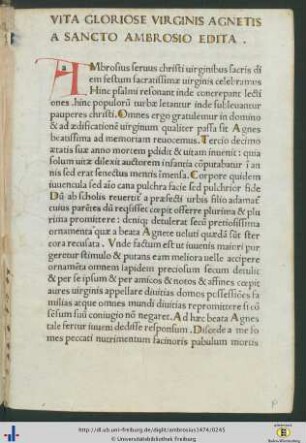 VITA GLORIOSE VIRGINIS AGNETIS
A SANCTO AMBROSIO EDITA .
AMbrosius seruus christi uirginibus sacris di
em festum sacratissimæ uirginis celebramus
Hinc psalmi resonant inde concrepant lecti
ones .hinc populorũ turbæ letantur inde subleuantur
pauperes christi. Omnes ergo gratulemur in domino
& ad ædificationẽ uirginum qualiter passa sit Agnes
beatissima ad memoriam reuocemus. Tercio decimo
ætatis suæ anno mortem pdidit & uitam inuenit: quia
solum uitæ dilexit auctorem infantia cõputabatur ĩ an
nis sed erat senectus mentis ĩmensa. Corpore quidem
iuuencula sed aĩo cana pulchra facie sed pulchrior fide
Dũ ab scholis reuertit a præfecti urbis filio adamat
cuius parẽtes dũ reqsisset cœpit offerre plurima & plu
rima promittere: deniq detulerat secũ preciosissima
ornamenta quæ a beata Agnete ueluti quædã sũt ster
cora recusata. Vnde factum est ut iuuenis maiori pur
geretur stimulo & putans eam meliora uelle accipere
ornamẽta omnem lapidem preciosum secum detulit
& per se ipsum & per amicos & notos & affines cœpit
aures uirginis appellare diuitias domos possessiões fa
milias atque omnes mundi diuitias repromittere si cõ
sensum sui coniugio nõ negaret. Ad hæc beata Agnes
tale fertur iuueni dedisse responsum. Discede a me fo
mes peccati nutrimentum facinoris pabulum mortis
http://dl.ub.uni-freiburg.de/diglit/ambrosius1474/0245
© Universitätsbibliothek Freiburg
Baden-Württemberg